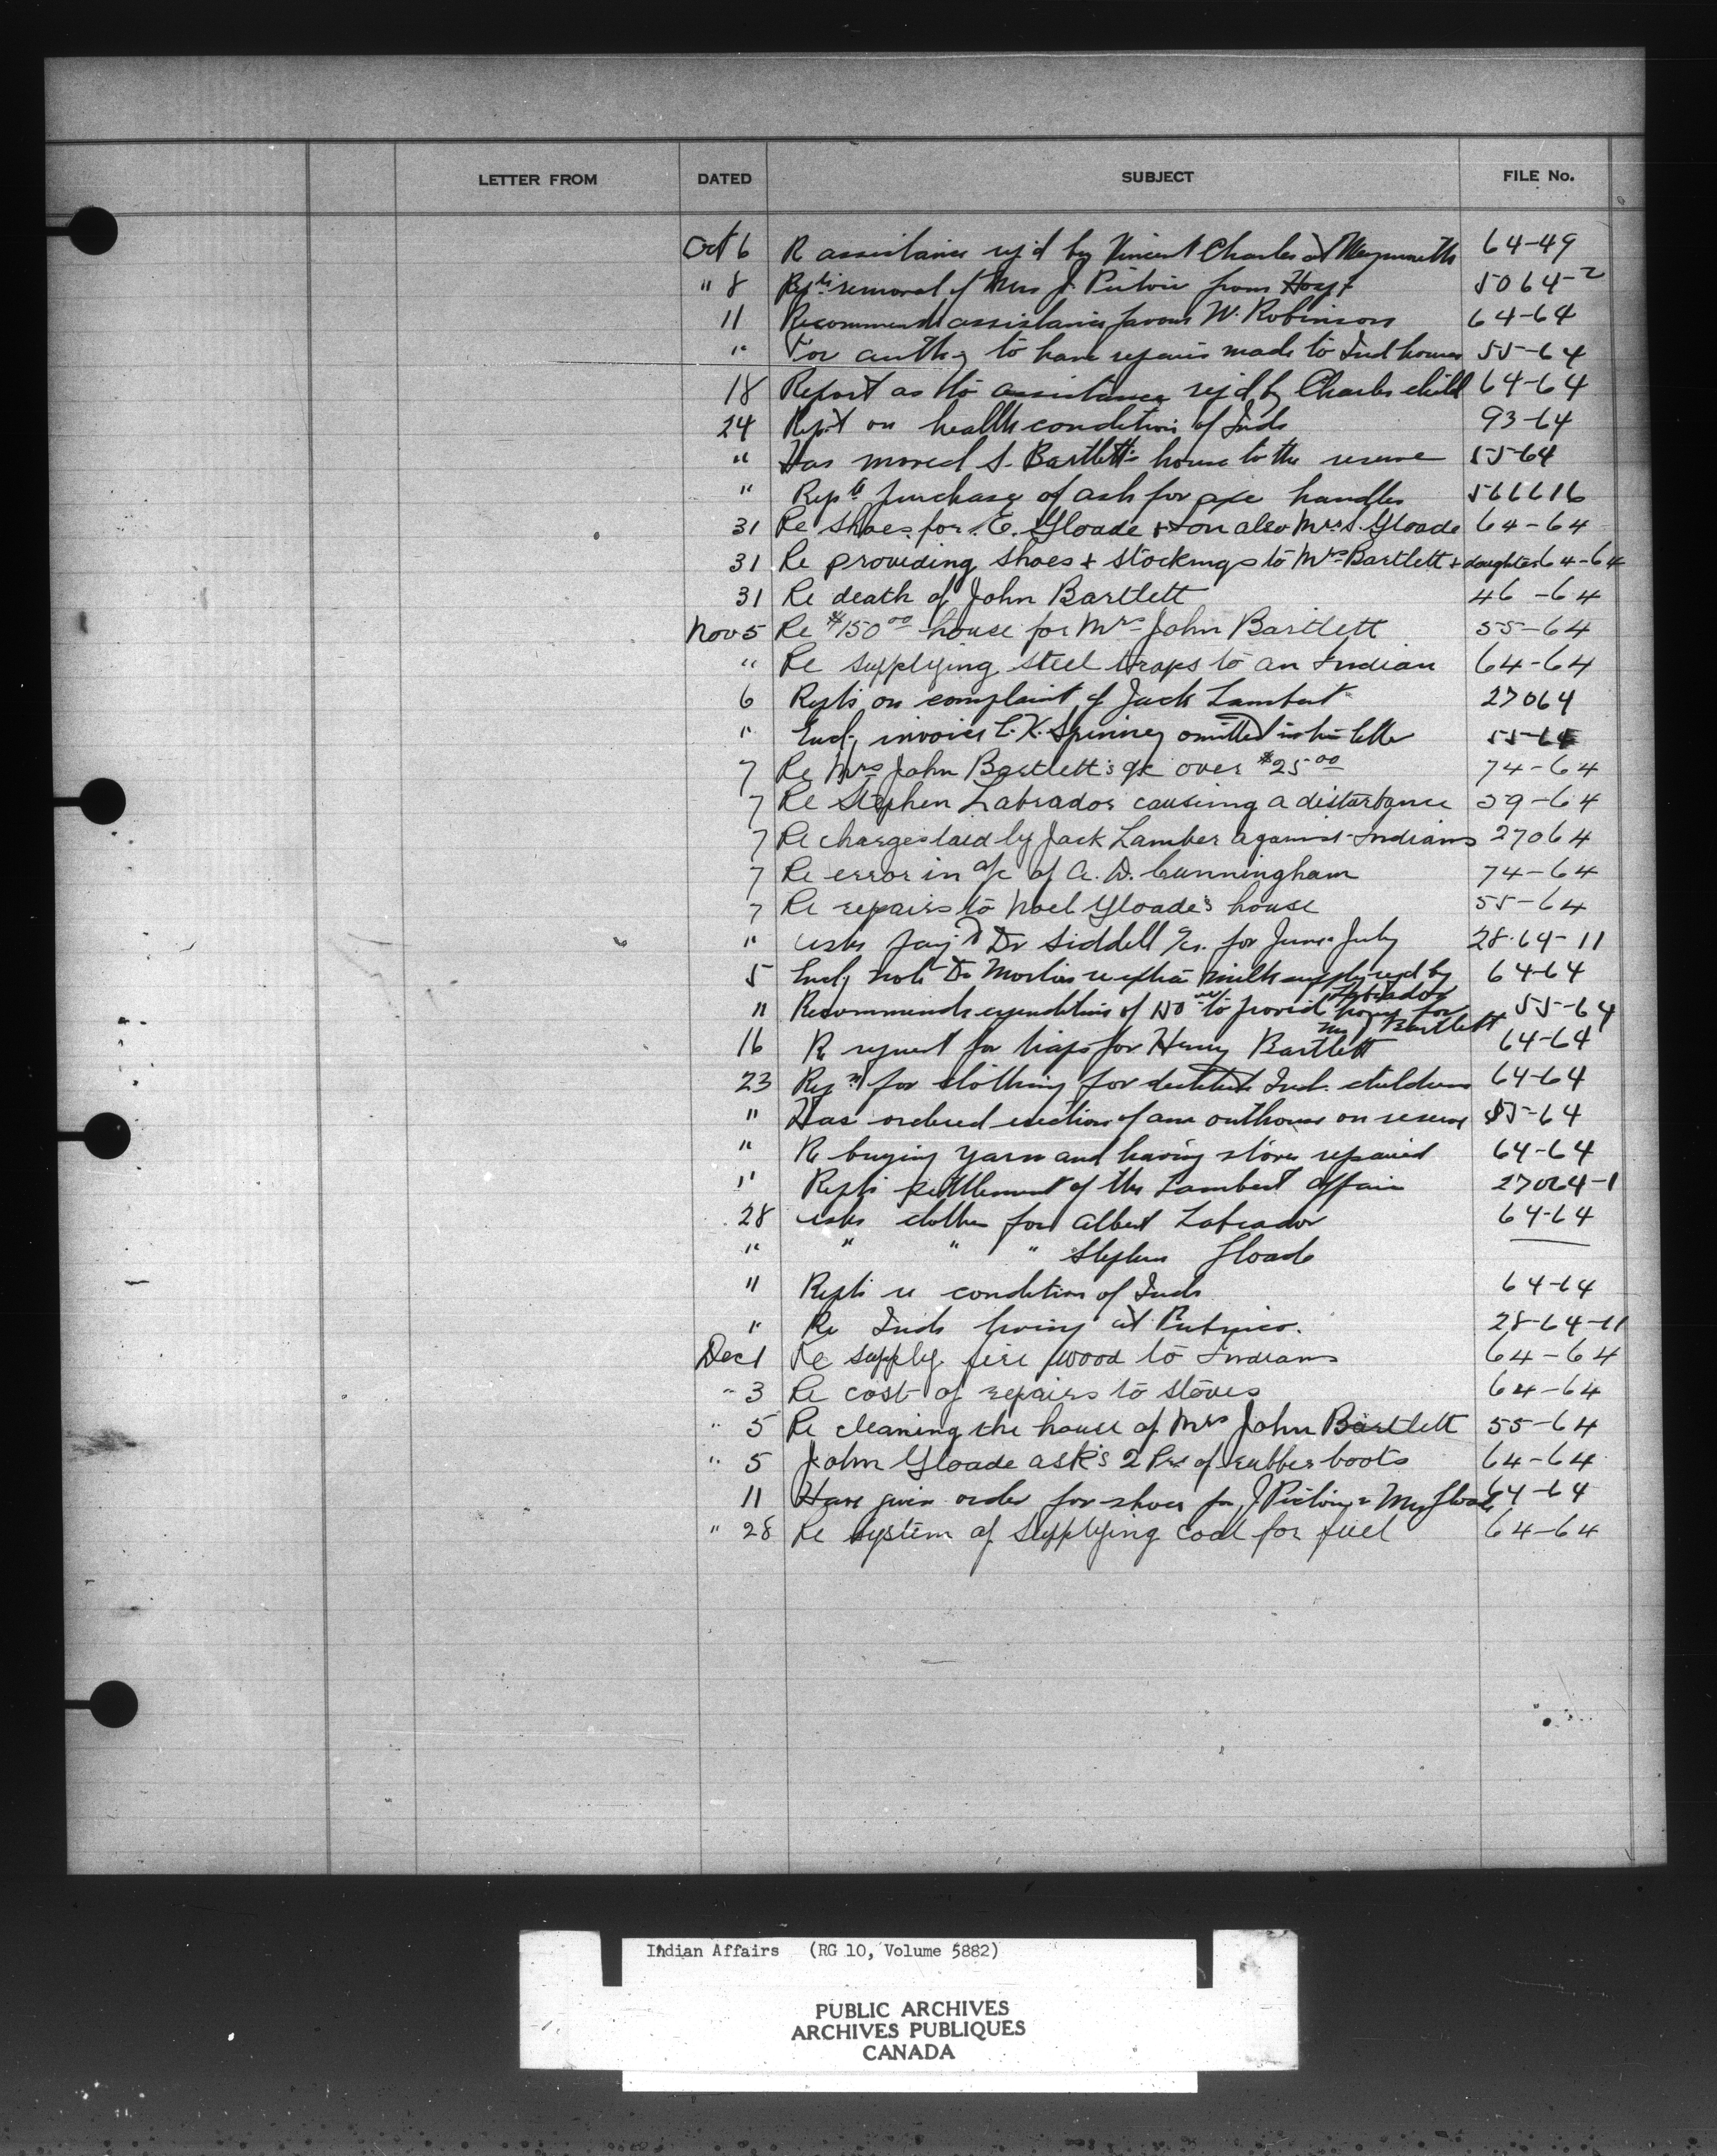 LETTER FROM DATED SUBJECT FILE No.
Oct 6 Re assistance req'd by Vincent Charles at Weymouth 64-49
" 8 Repts removal of Mrs J. Pictou from Hosp't 5064-2
11 Recommends assistance favour W. Robinson 64-64
" For auth'y to have repairs made to Ind houses 55-64
18 Report as to assistance req'd by Charles child 64-64
24 Rep't on health condition of Inds 93-64
" Has moved S. Bartlett's house to the reserve 55-64
" Repts purchase of ash for axe handles 566616
31 Re shoes for E. Gloade + son also Mrs S. Gloade 64-64
31 Re providing shoes + stockings to Mrs Bartlett + daughter 64-64
31 Re death of John Bartlett 46-64
Nov 5 Re $150 00 house for Mrs John Bartlett 55-64
" Re supplying steel traps to an Indian 64-64
6 Repts on complaint of Jack Lambert 27064
" Encl'g invoices L.K. Spinney omitted in his letter 55-64
7 Re Mrs John Bartlett's a/c over $25 00 74-64
7 Re Stephen Labrador causing a disturbance 59-64
7 Re charges laid by Jack Lamber against Indians 27064
7 Re error in a/c of A. D. Cunningham 74-64
7 Re repairs to Noel Gloade's house 55-64
" Asks pay't Dr Siddell for June & July 28-64-11
5 Encl'g note Dr Morton re extra milk supply req'd by Labrador 64-64
" Recommends expenditure of 150 00 to provide house for Mrs J Bartlett 55-64
16 Re request for traps for Henry Bartlett 64-64
23 Reqn for clothing for destitute Ind. children 64-64
" Has ordered erection of one outhouse on reserve 55-64
" Re buying yarn and having stoves repaired 64-64
" Repts settlement of the Lambert affair 27064-1
28 Asks clothes for Albert Labrador 64-64
" " " " Stephen Gloade
" Repts re condition of Inds 64-64
" Re Inds living at Pubnico. 28-64-11
Dec 1 Re supply fire wood to Indians 64-64
" 3 Re cost of repairs to stoves 64-64
" 5 Re cleaning the house of Mrs John Bartlett 55-64
" 5 John Gloade ask's 2 Prs of rubber boots 64-64
11 Have given order for shoes for J Pictou & Mrs Gloade 64-64
" 28 Re system of supplying coal for fuel 64-64
Indian Affairs (RG 10, Volume 5882)
PUBLIC ARCHIVES
ARCHIVES PUBLIQUES
CANADA